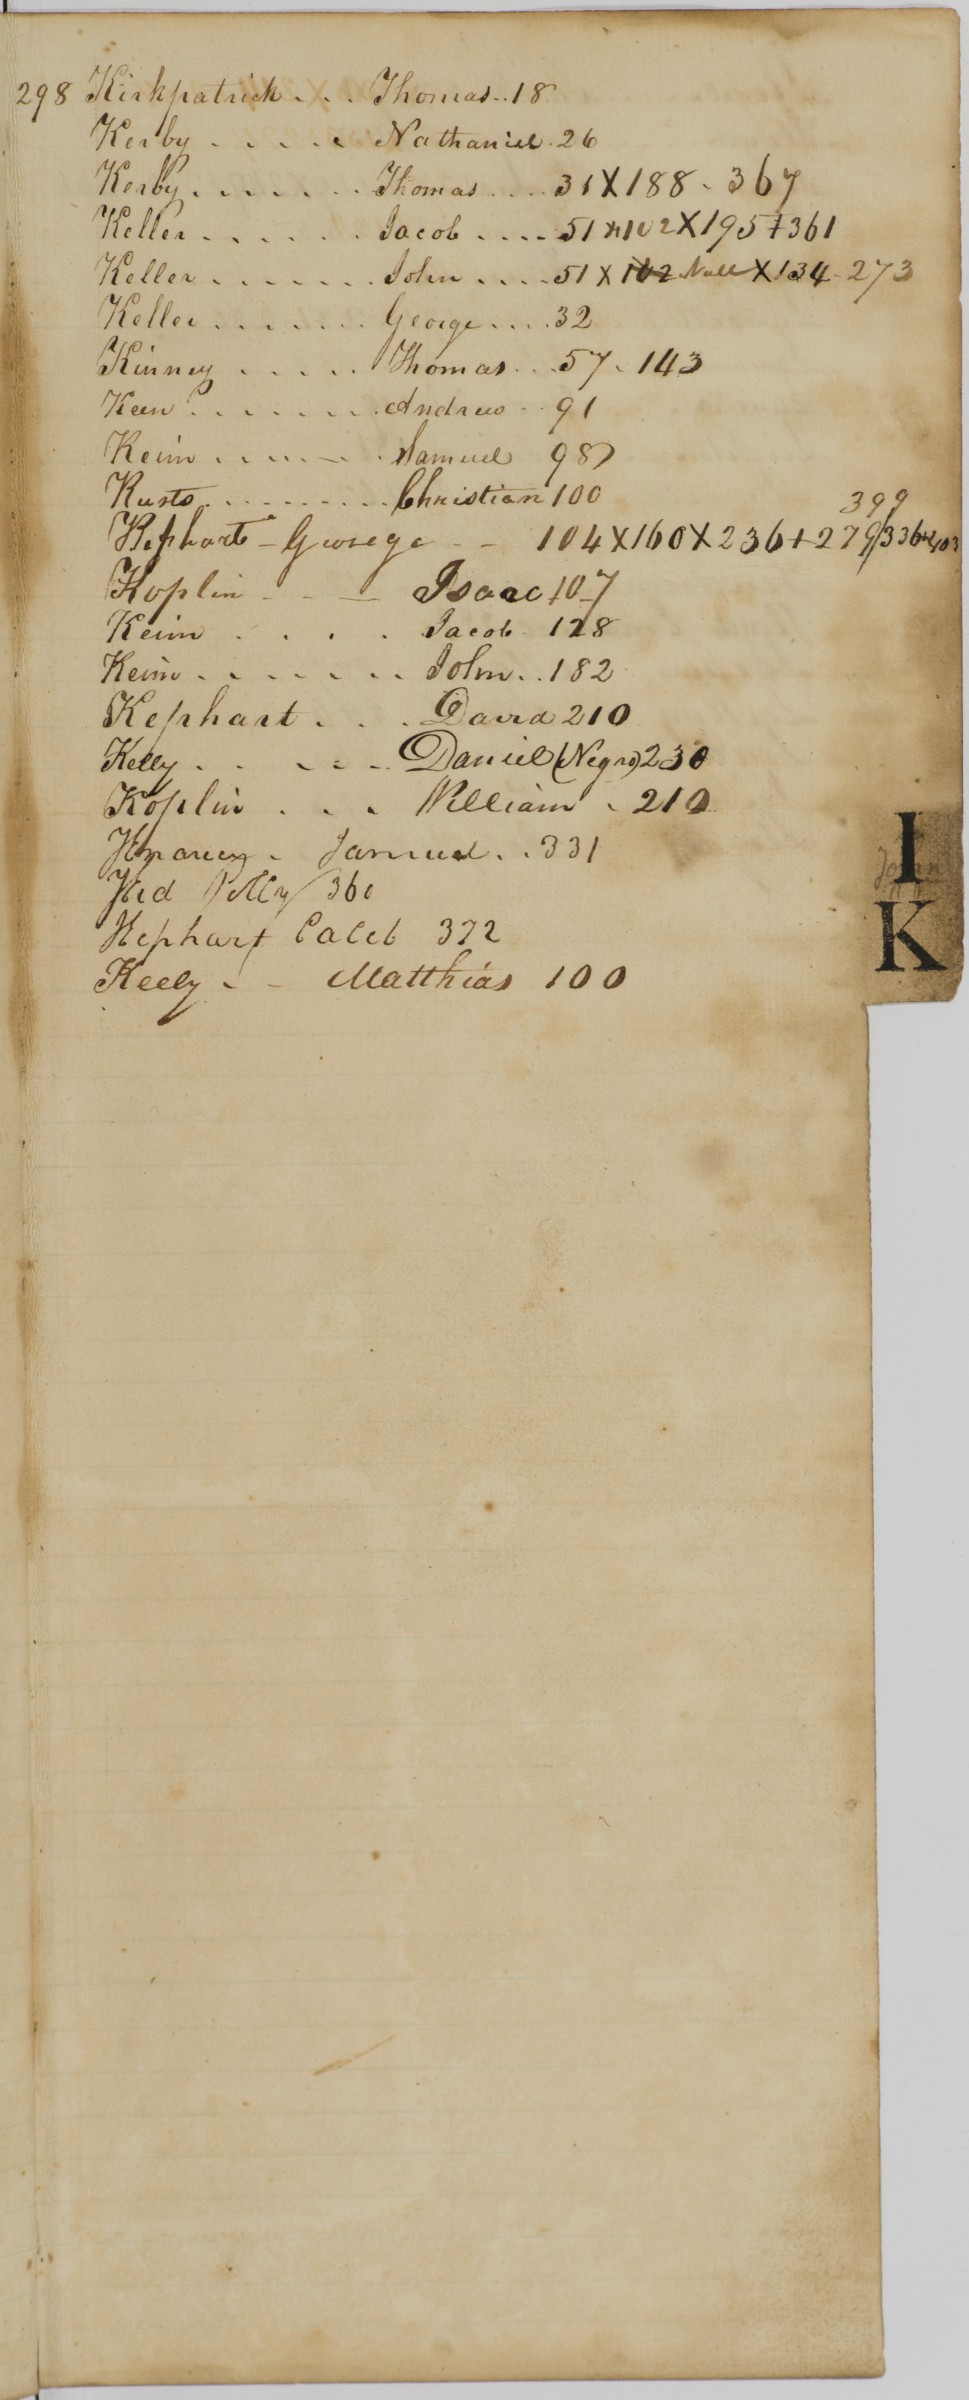 298 Kirkpatrick . . . Thomas . . 18
Kerby . . . . . Nathaniel . 26
Kerby . . . . . . Thomas . . . 31 X 188 - 367
Keller . . . . . . Jacob . . . . 51 X 102 X 195 + 361
Keller . . . . . . . John . . . . 51 X 102 Null X 134 - 273
Keller . . . . . . . George . . . . 32
Kinney . . . . . Thomas . . . 57 - 143
Keen . . . . . . . Andrew - - 91
Keim . . . . . . Samuel 98
Kusto . . . . . . . . Christian 100
399
Kephart - George - - 104 X 160 X 236 + 279/336 + 403
Koplin - - - Isaac 107
Keim . . . . Jacob 128
Keim . . . . . . . John . . 182
Kephart . . . David 210
Kelly . . . . . . Daniel (Negro) 230
Koplin . . . William . 210
Samuel . . 331
Ked Polly 360
Kephart Caleb 372
Keely - - Matthias 100
I
John
K